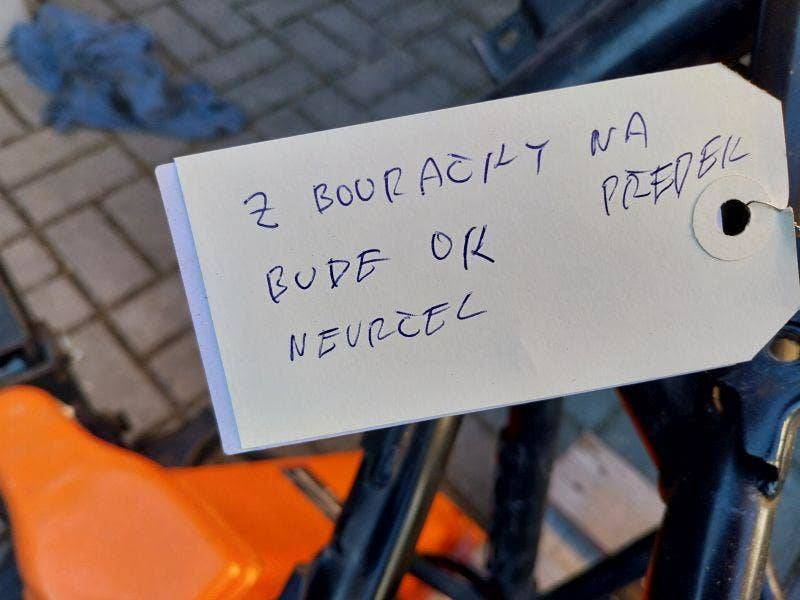 Z BOURAČKY NA
PŘEDEK
BUDE OK
NEURČEL